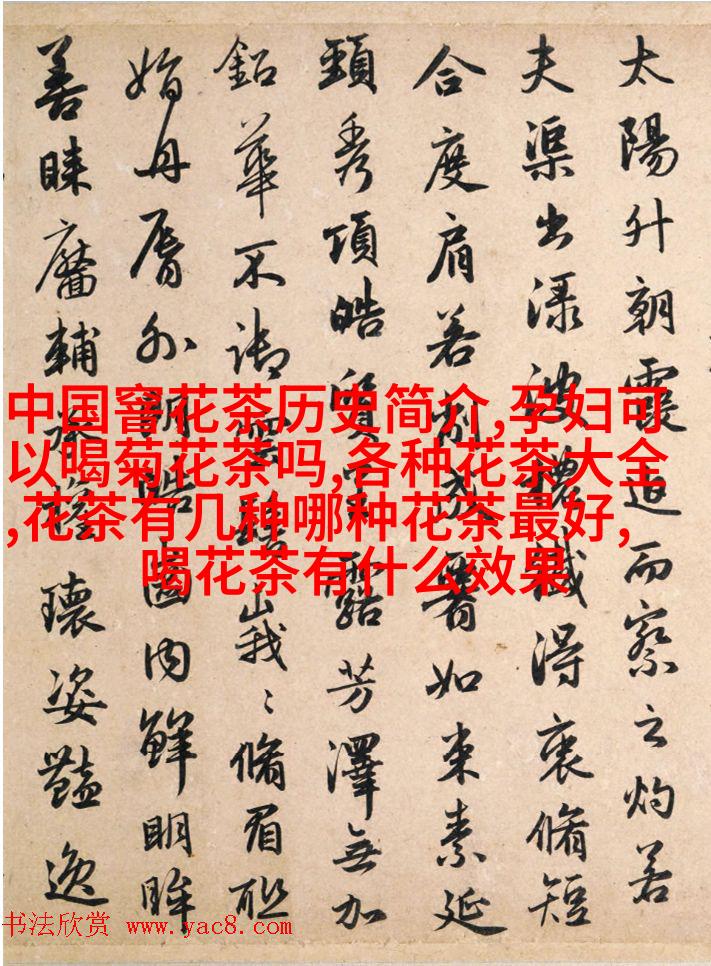 太陽升朝霞迫而察之灼若
夫渠出渌波穠纖得衷脩短
合度肩若削成如束素延
頸秀項皓質呈露芳澤無加
鉛華不御雲髻峩〻脩眉聯
娟丹脣外朗皓齒内鮮明眸
善睞靨輔承權瓌姿豔逸
中国窨花茶历史简介,孕妇可
以喝菊花茶吗,各种花茶大全
,花茶有几种哪种花茶最好,
喝花茶有什么效果
书法欣赏 www.yac8.com